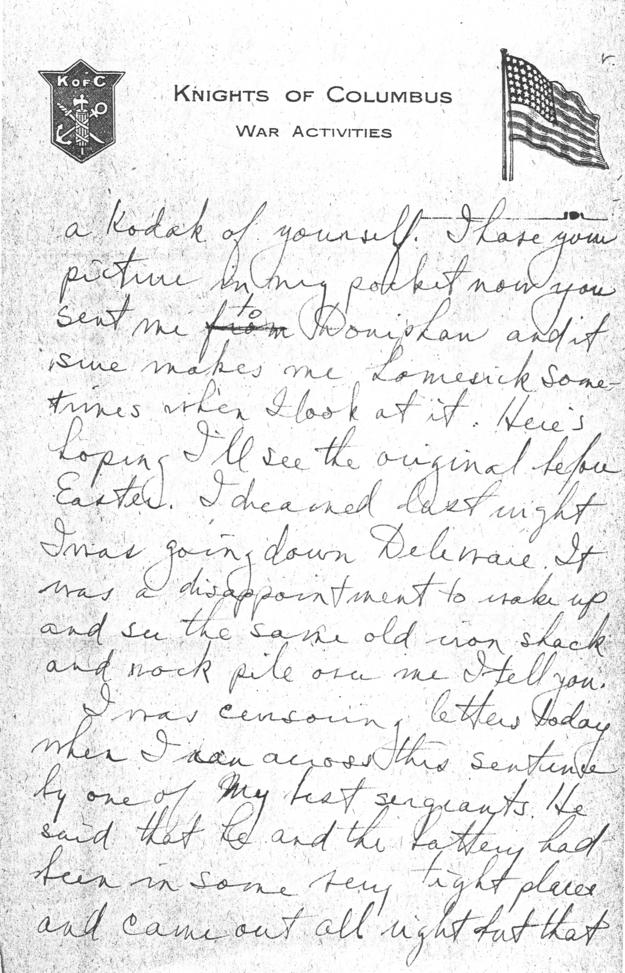 K OF C
KNIGHTS OF COLUMBUS
WAR ACTIVITIES
a Kodak of yourself. I have your
picture in my pocket now you
sent me ~~from~~ to Doniphan and it
sure makes me homesick some-
times when I look at it. Here's
hoping I'll see the original before
Easter. I dreamed last night
I was going down Deleware. It
was a disappointment to wake up
and see the same old iron shack
and rock pile over me I tell you.
I was censoring letters today
when I ran across this sentence
by one of My best sergeants. He
said that he and the battery had
been in some very tight places
and came out all right but that